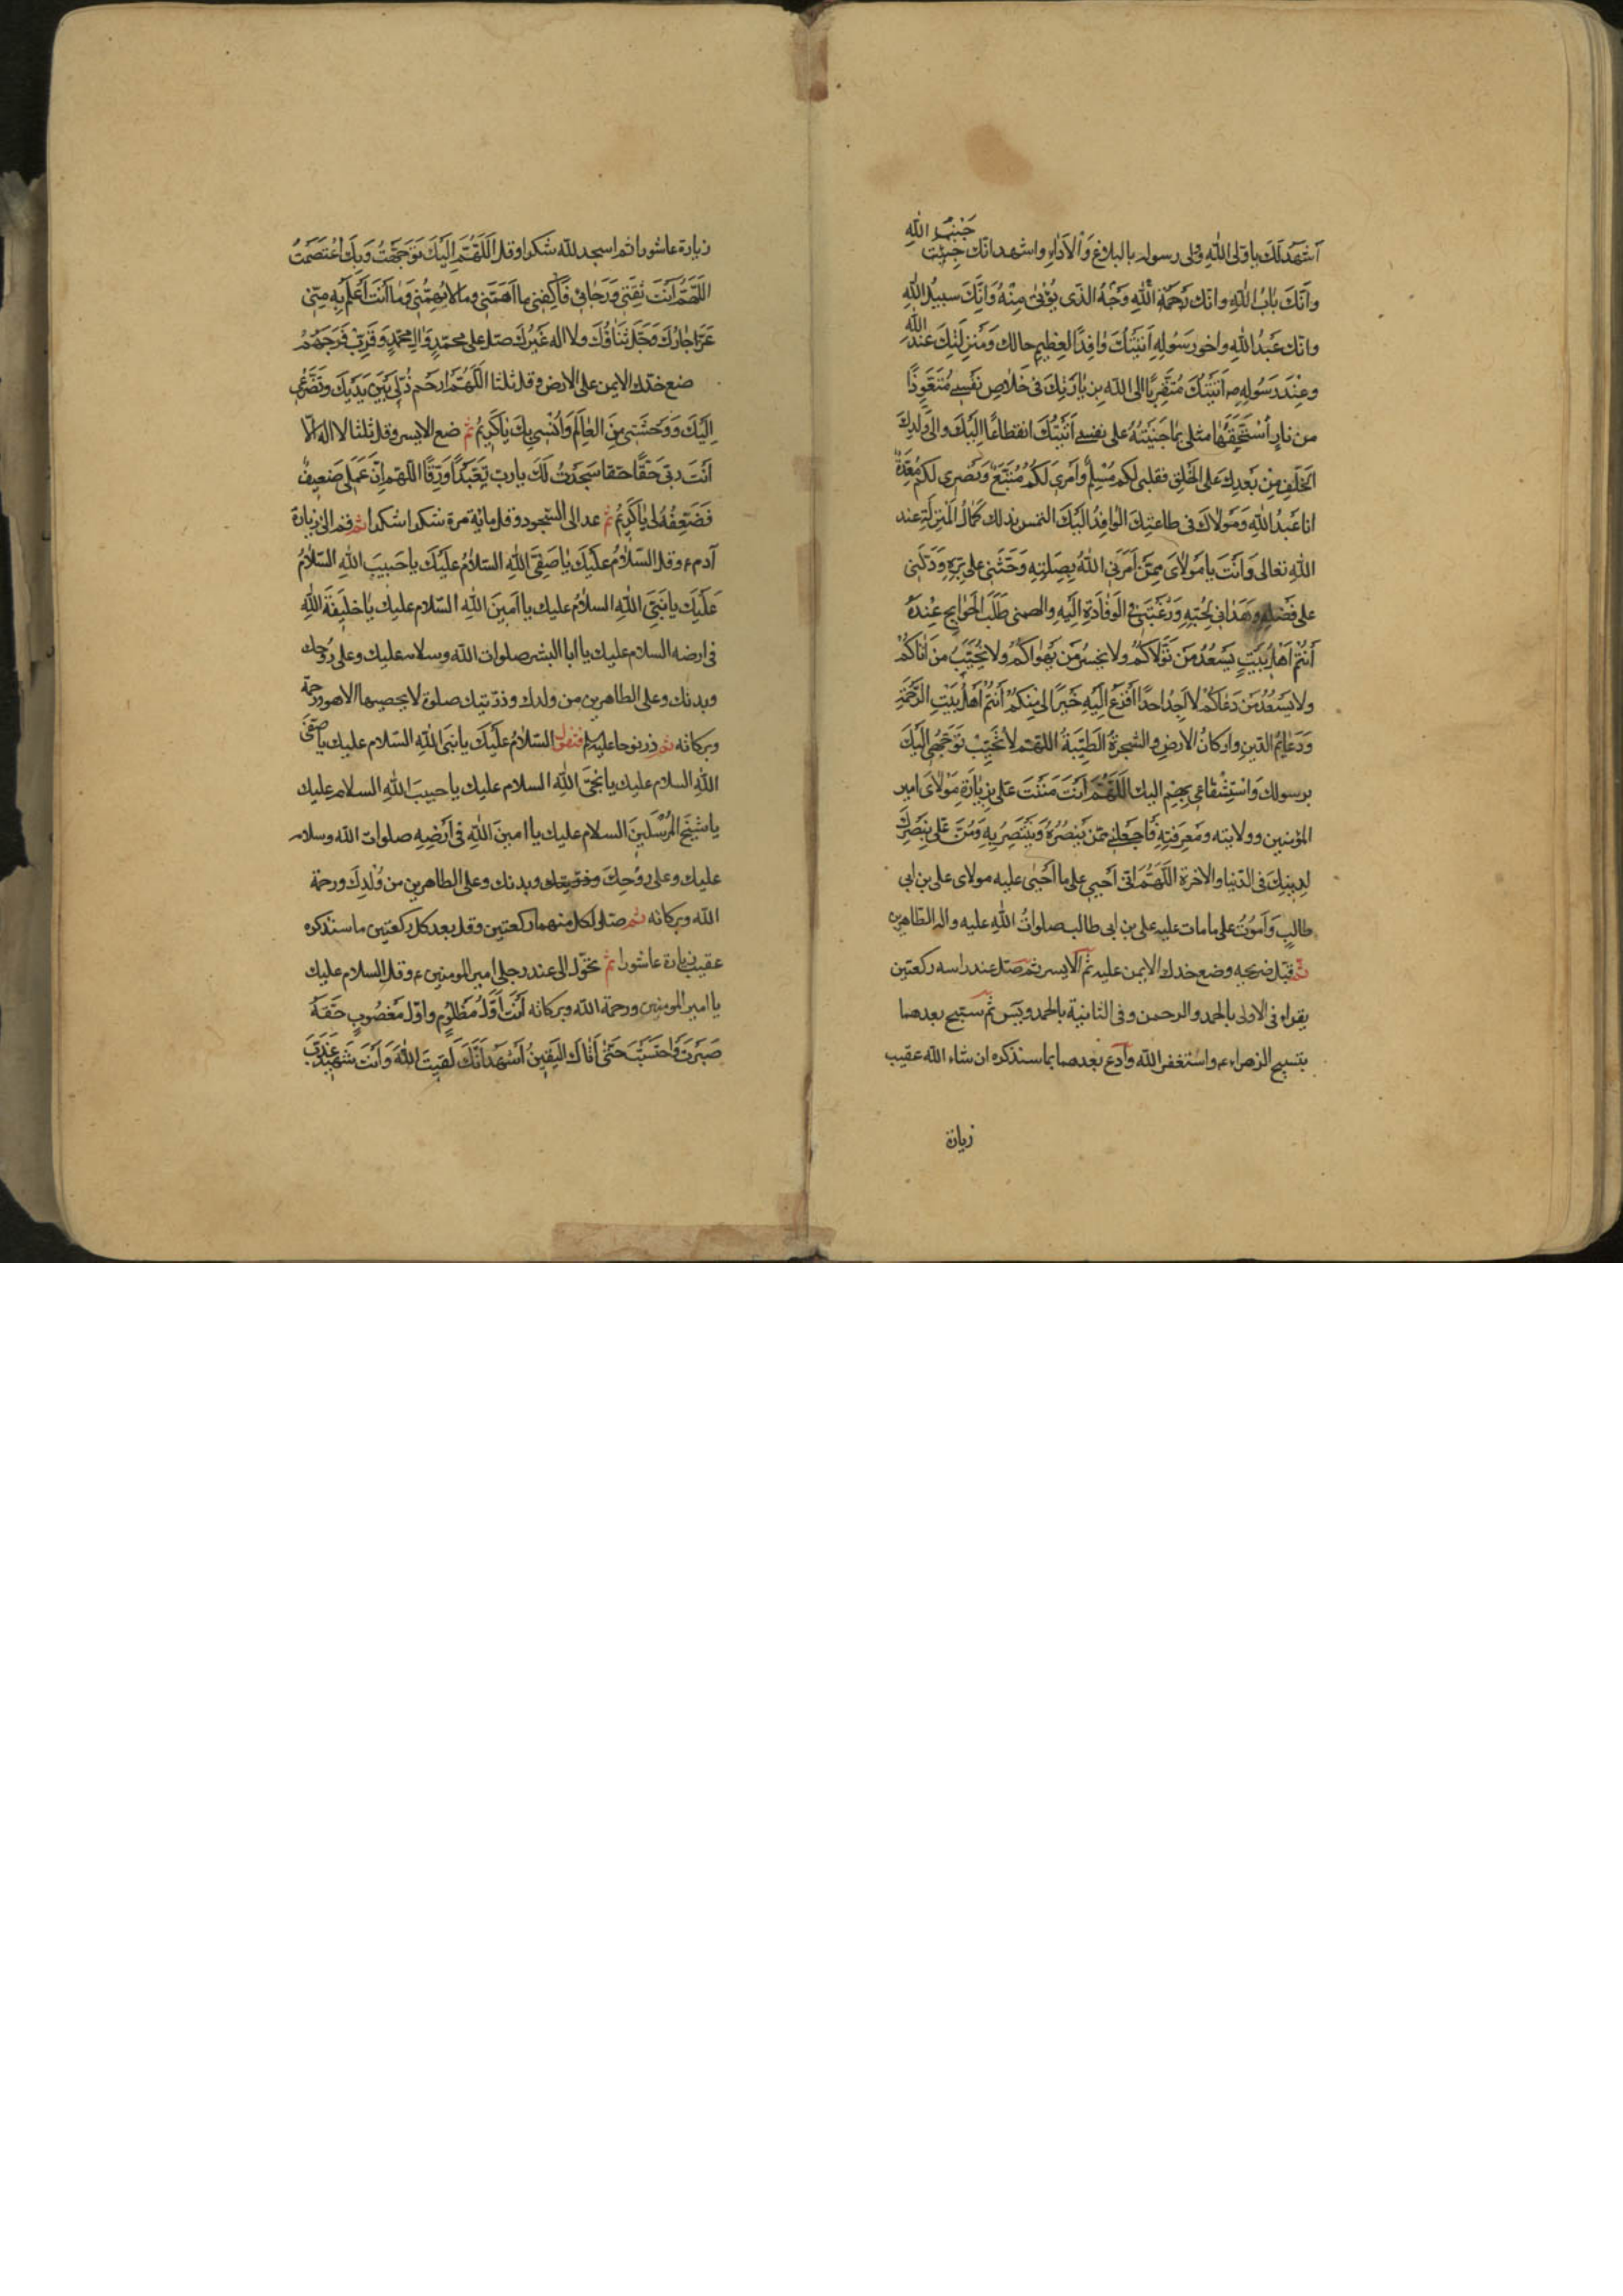 اَشْهَدُ لَكَ يا وَلِىَّ اللهِ وَلى رسوله بالبلاغِ وَالْاَداءِ واشهد انّك جِئِتَ جَنْبُ اللهِ
وانَّكَ بابُ اللهِ وانّك رَحْمَةُ اللهِ وَجْهُ الّذى يُؤْتى مِنْهُ وَانَّكَ سبيلُ اللهِ
وانّك عَبْدُ اللهِ واخو رَسُولِهِ اَتَيْتُكَ وافِداً لِعَظِيمِ حالك وَمَنْزِلَتِكَ عندَ الله
وعِنْدَ رَسُولِهِ ص اَتَيْتُكَ مُتَقَرِّباً الى الله بِزِيارَتِكَ فى خَلاصِ نَفْسِى مُتَعَوِّذاً
من نارٍ اسْتَحَقَّها مثلى بِما جَنَيْتُهُ على نفسى اَتَيْتُكَ انقطاعًا اِلَيْكَ والى وَلَدِكَ
الخَلَفِ مِنْ بَعْدِكَ عَلى الخَلْقِ فقلبى لكم مُسَلِّمٌ وَاَمرى لَكُمْ مُتَّبِعٌ وَنُصْرتى لَكُمْ مُعَدَّةٌ
انا عَبْدُ اللهِ وَمَوْلاكَ فى طاعتِكَ الوافِدُ اِلَيْكَ التمس بذلك كمالَ المَنْزِلَةِ عند
اللهِ تعالى وَاَنْتَ يا مَوْلاىَ مِمَّنْ اَمَرَنِى اللهُ بِصِلَتِهِ وَحَثَّنِى على بِرِّهِ وَدَلَّنِى
على فَضْلِهِ وَهَدانى لِحُبِّهِ وَرَغَّبَنِى فى الوَفادَةِ اِلَيْهِ والهمنى طَلَبَ الحَوائِجِ عِنْدَهُ
اَنْتُمْ اَهْلُ بَيْتٍ يَسْعَدُ مَنْ تَوَلّاكُمْ ولا يخسرُ مَن يَهْواكُمْ ولا يُخَيَّبُ مَنْ اَتاكُمْ
ولا يَسْعُدُ مَنْ دَعاكُمْ لا اَجِدُ احداً اَفْزَعُ اِلَيْهِ خَيْراً لى مِنْكُمْ اَنْتُمْ اَهْلُ بَيْتِ الرَّحْمَةِ
وَدَعائِمُ الدّينِ واركانُ الارضِ والشّجرةُ الطَيِّبَةُ اللهمّ لا تُخَيِّبْ تَوَجُّهِى اِلَيْكَ
برسولك وَاسْتِشْفاعى بِهِمْ اليك اَللّهُمَّ اَنْتَ مَنَنْتَ عَلَىَّ بِزِيارَةِ مَوْلاىَ امير
المؤمنين وولايته ومَعرِفَتِهِ فَاجعَلنى مِمّن يَنْصُرُهُ وَيَنْتَصِرُ بِهِ وَمُنَّ عَلَىَّ بِنَصْرِكَ
لِدِينِكَ فى الدّنيا والاخرة اَللّهُمَّ انّى اَحْيى على ما اَحْيى عليه مولاى على بن ابى
طالبٍ وَاَمُوتُ على ما مات عليه على بن ابى طالب صلواتُ اللهِ عليه واله الطّاهرين
ثمّ قبّل ضريحه وضع خدك الايمن عليه ثمّ الايسر ثمّ صَلّ عند راسه ركعتين
يقراء فى الاولى بالحمد والرحمن وفى الثانية بالحمد ويس ثمّ تسبّح بعدهما
بتسبيح الزهراء ع واستغفر الله وادع بعدهما بما سنذكره ان شاء الله عقيب
زيارة
زيارة عاشورا ثم اسجد للّه شكرا وقل اَللّهُمَّ اِلَيْكَ تَوَجَّهْتُ وَبِكَ اعْتَصَمْتُ
اللّهُمَّ اَنْتَ ثِقَتى وَرَجائى فَاكْفِنى ما اَهَمَّنى وما لا يُهِمُّنى وَما اَنْتَ اَعْلَمُ بِهِ مِنّى
عَزَّ جارُكَ وَجَلَّ ثَناؤُكَ ولا اله غَيْرُكَ صلّ على محمّدٍ وَالِ محمّدٍ وَقَرِّبْ فَرَجَهُمْ
ضع خدّك الايمن على الارض وقل ثلثا اَللّهُمَّ ارحَم ذُلّى بَيْنَ يَدَيْكَ وتَضَرُّعى
اِلَيْكَ وَوَحْشَتى مِنَ العالَمِ وَاُنْسِى بِكَ يا كَرِيمُ ثمّ ضع الايسر وقل ثلثا لا اله الّا
اَنْتَ ربّى حَقًّا حقا سَجَدْتُ لَكَ يا ربّ تَعَبُّداً وَرِقًّا اللّهمّ انّ عَمَلى ضَعِيفٌ
فَضَعِّفْهُ لى يا كَرِيمُ ثمّ عد الى السّجود وقل مائة مرة شكرا شكرا ثمّ قم الى زيارة
آدم ع وقل السّلامُ عَلَيْكَ يا صَفِىَّ اللهِ السّلامُ عَلَيْكَ يا حَبيبَ اللهِ السّلامُ
عَلَيْكَ يا نَبِىَّ اللهِ السلامُ عليك يا اَمِينَ اللهِ السّلام عليك يا خليفَةَ اللهِ
فى ارضه السلام عليك يا ابا البشر صلوات الله وسلامه عليك وعلى رُوحك
وبدنك وعلى الطاهرين من ولدك وذرّيتك صلوة لا يحصيها الا هو ورحمة
وبركاته ثمّ زر نوحا عليه السلم فتقول السّلامُ عَلَيْكَ يا نبىَ اللهِ السّلام عليك يا صَفىَّ
اللهِ السلام عليك يا نَجِىَّ اللهِ السلام عليك يا حبيبَ اللهِ السلام عليك
يا شَيْخَ المُرْسَلينَ السلام عليك يا امينَ اللهِ فى اَرْضِهِ صلوات الله وسلامه
عليك وعلى رُوحِكَ وبدنك وعلى الطاهرين من وُلْدِكَ ورحمة
الله وبركاته ثمّ صلّ لكلّ منهما ركعتين وقل بعد كلّ ركعتين ما سنذكره
عقيب زيارة عاشورا ثمّ تحوّل الى عند رجلى امير المومنين ع وقل السلام عليك
يا امير المومنين ورحمة الله وبركاته اَنْتَ اَوَّلُ مَظْلُومٍ واوّل مَغْصُوبٍ حَقُّهُ
صَبَرْتَ وَاحْتَسَبْتَ حَتّى اَتاكَ اليَقِينُ اَشْهَدُ اَنَّكَ لَقِيتَ اللهَ وَاَنْتَ شَهِيدٌ عَذَّبَ